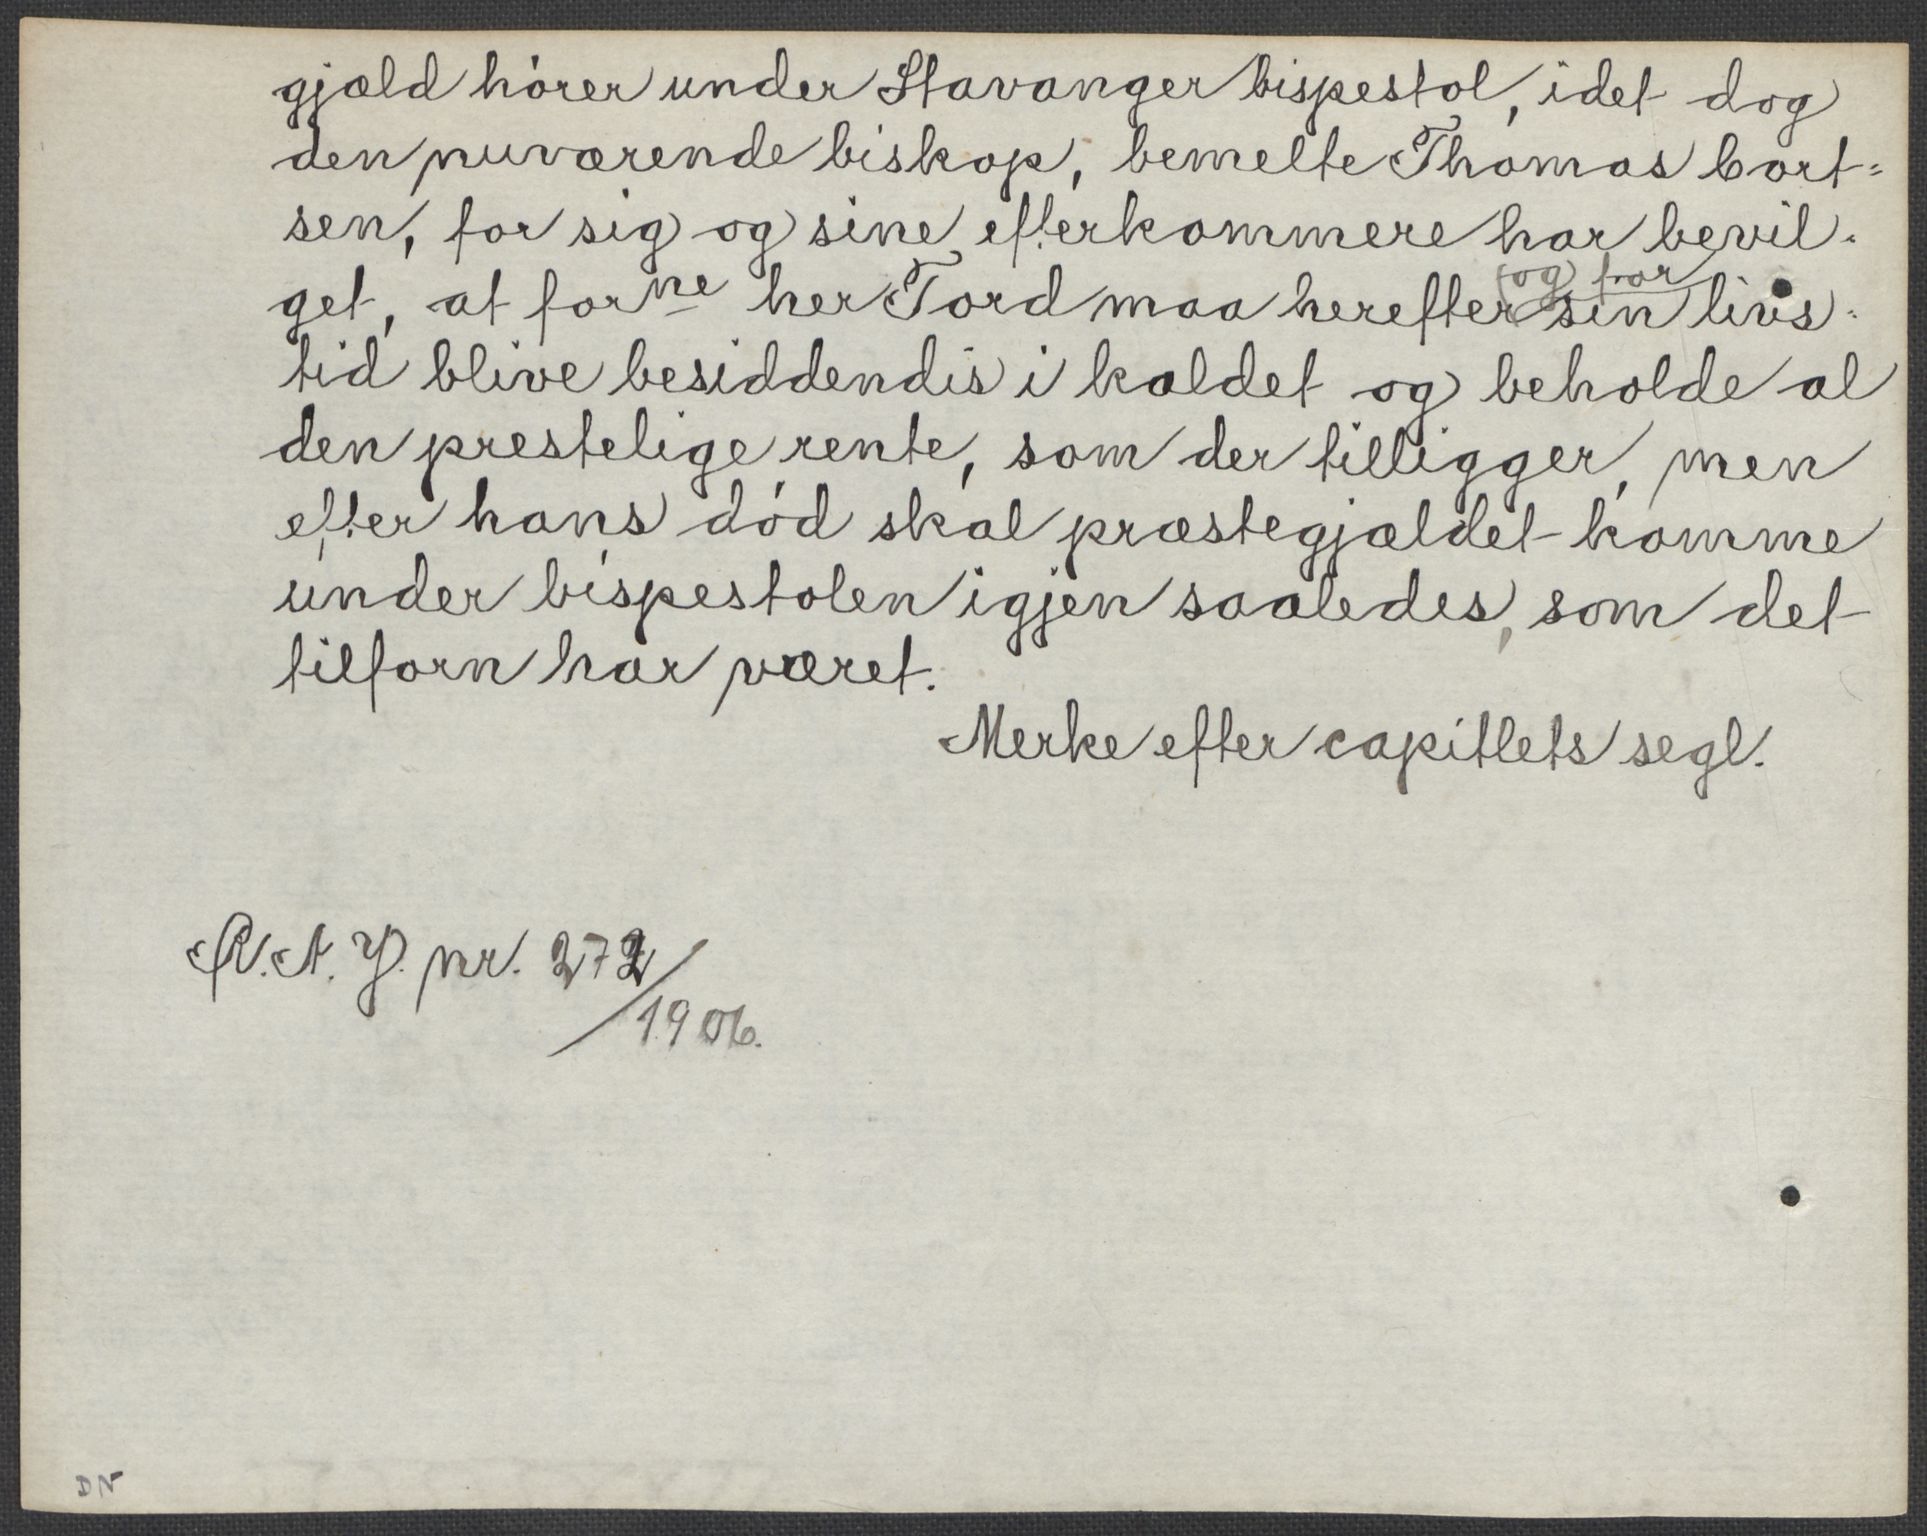 gjæld hører under Stavanger bispestol, idet dog
den nuværende biskop, bemelte Thomas Cort=
sen, for sig og sine efterkommere har bevil-
get, at forne her Tord maa herefter og for sin livs-
tid blive besiddendis i kaldet og beholde al
den prestelige rente, som der tilligger, men
efter hans død skal præstegjældet komme
under bispestolen igjen saaledes, som det
tilforn har været.
Merke efter capitlets segl.
R.A. J. nr. 272/1906.
DN